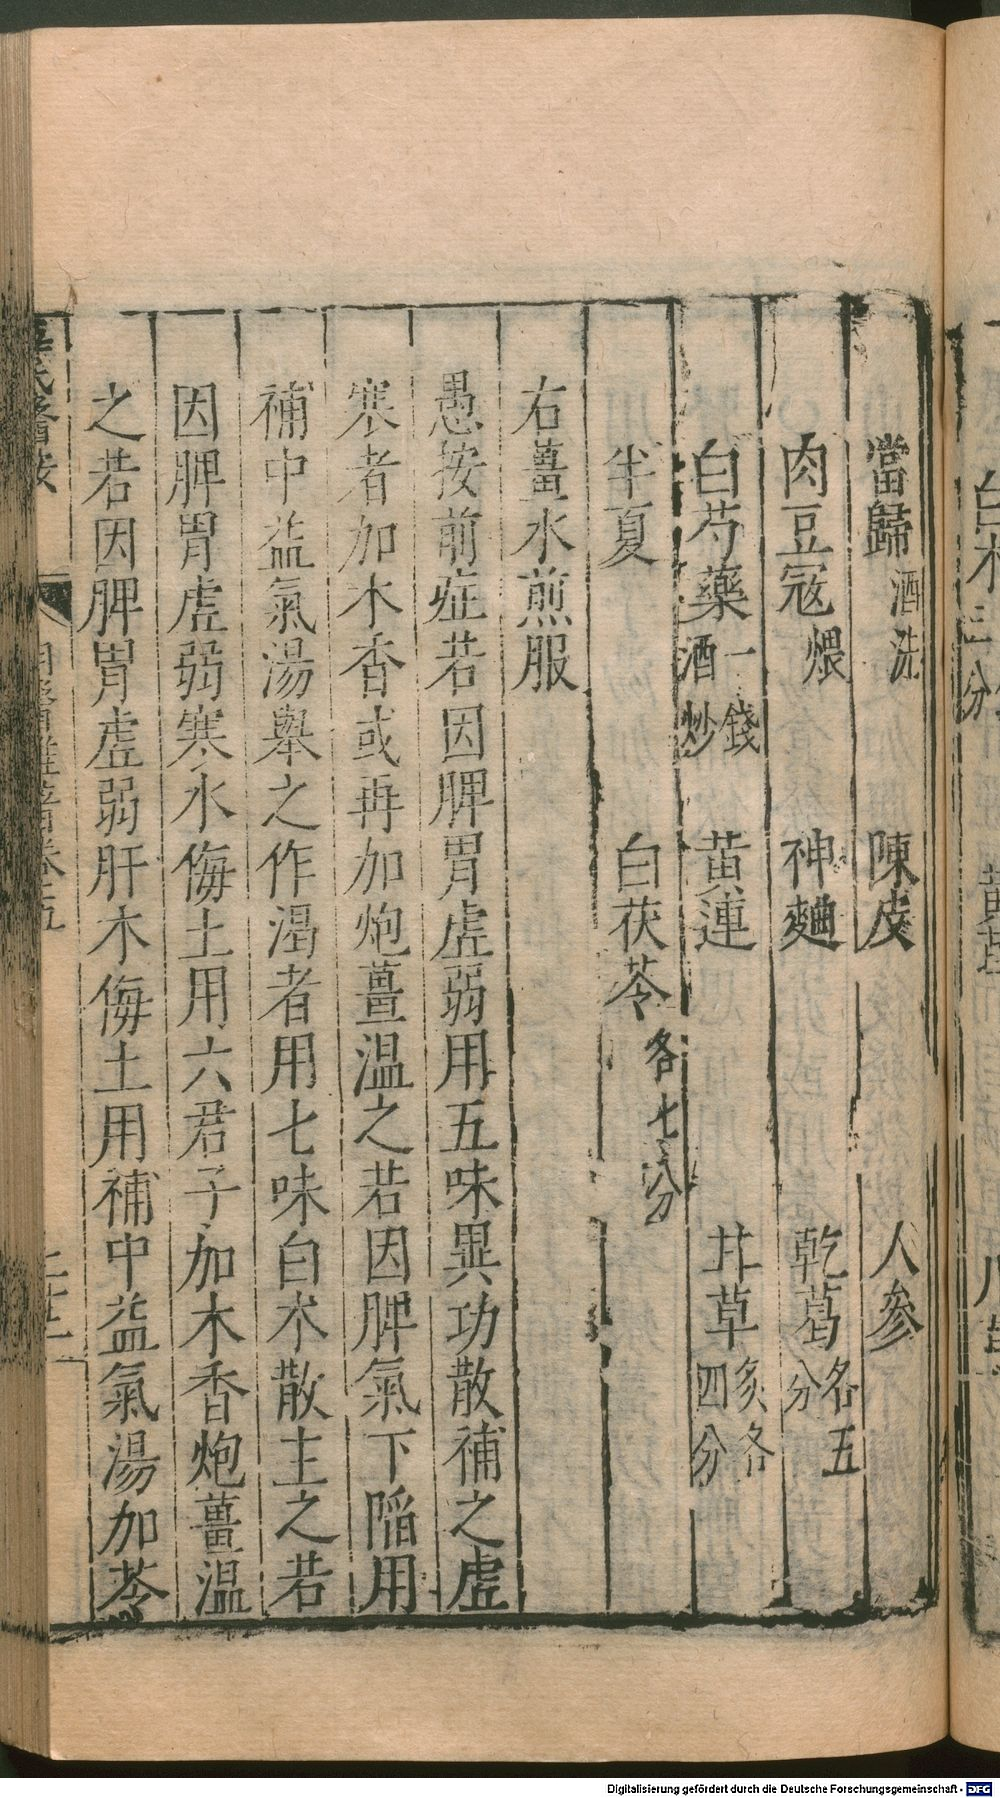 當歸酒洗 陳皮 人參
肉豆寇煨 神麯 乾葛各五分
白芍藥一錢酒炒 黃連 甘草炙各四分
半夏 白茯苓各七分
右薑水煎服
愚按前症若因脾胃虛弱用五味異功散補之虛
寒者加木香或再加炮薑温之若因脾氣下陷用
補中益氣湯舉之作渴者用七味白朮散主之若
因脾胃虛弱寒水侮土用六君子加木香炮薑温
之若因脾胃虛弱肝木侮土用補中益氣湯加苓
Digitalisierung gefördert durch die Deutsche Forschungsgemeinschaft - DFG